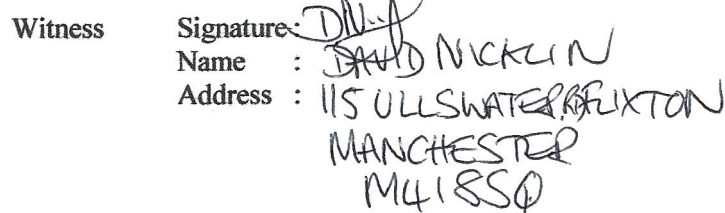 Witness Signature:
Name : DAVID NICKLIN
Address : 115 ULLSWATER RD FLIXTON
MANCHESTER
M41 8SQ